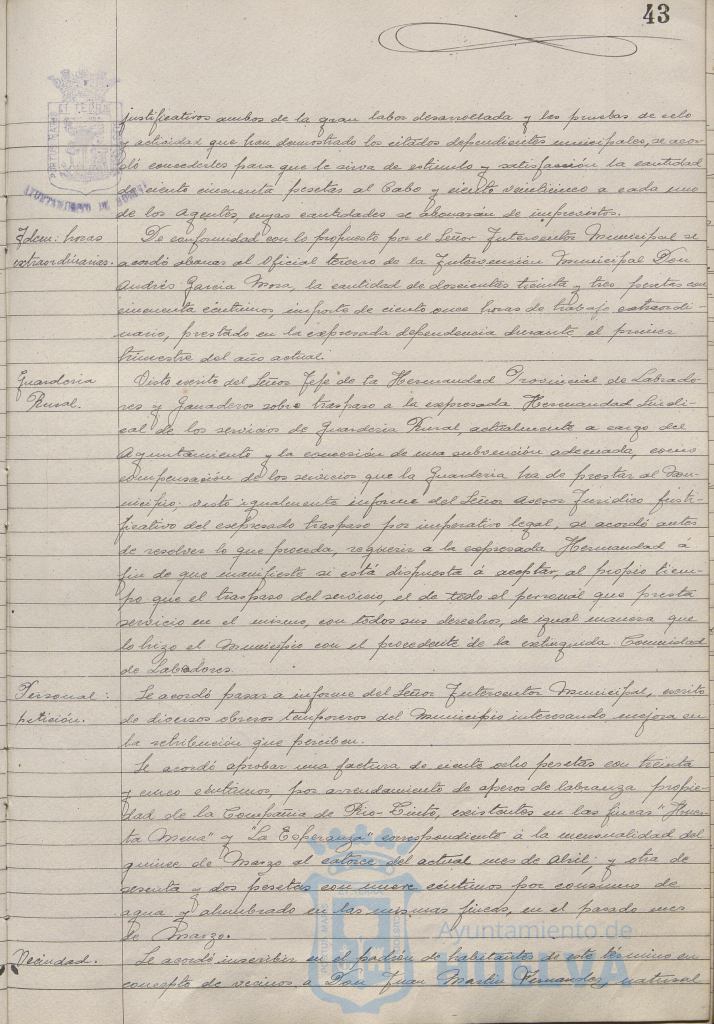 43
justificativos ambos de la gran labor desarrollada y las pruebas de celo
y actividad que han demostrado los citados dependientes municipales, se acor-
dó concederles para que le sirva de estimulo y satisfacción la cantidad
de ciento cincuenta pesetas al Cabo y ciento veinticinco a cada uno
de los Agentes, cuyas cantidades se abonarán de imprevistos.
AYUNTAMIENTO DE HUELVA
Idem: horas
extraordinarias.
De conformidad con lo propuesto por el Señor Interventor Municipal se
acordó abonar al Oficial tercero de la Intervención Municipal Don
Andrés García Mora, la cantidad de doscientas treinta y tres pesetas con
cincuenta céntimos, importe de ciento once horas de trabajo extraordi-
nario, prestado en la expresada dependencia durante el primer
trimestre del año actual.
Guarderia
Rural.
Visto escrito del Señor Jefe de la Hermandad Provincial de Labrado-
res y Ganaderos sobre traspaso a la expresada Hermandad Sindi-
cal de los servicios de Guarderia Rural, actualmente a cargo del
Ayuntamiento y la concesión de una subvención adecuada, como
compensación de los servicios que la Guarderia ha de prestar al Mu-
nicipio; visto igualmente informe del Señor Asesor Juridico justi-
ficativo del expresado traspaso por imperativo legal, se acordó antes
de resolver lo que proceda, requerir a la expresada Hermandad á
fin de que manifieste si está dispuesta á aceptar, al propio tiem-
po que el traspaso del servicio, el de todo el personal que presta
servicio en el mismo, con todos sus derechos, de igual manera que
lo hizo el Municipio con el procedente de la extinguida Comunidad
de Labradores.
Personal:
petición.
Se acordó pasar a informe del Señor Interventor Municipal, escrito
de diversos obreros temporeros del Municipio interesando mejora en
la retribución que perciben.
Se acordó aprobar una factura de ciento ocho pesetas con treinta
y cinco céntimos, por arrendamiento de aperos de labranza propie-
dad de la Compañia de Rio-Tinto, existentes en las fincas "Huer-
ta Mena" y "La Esperanza" correspondiente á la mensualidad del
quince de Marzo al catorce del actual mes de Abril; y otra de
sesenta y dos pesetas con nueve céntimos por consumo de
agua y alumbrado en las mismas fincas, en el pasado mes
de Marzo.
Vecindad.
Se acordó inscribir en el padrón de habitantes de este término en
concepto de vecinos a Don Juan Martin Fernandez, natural
Ayuntamiento de
HUELVA